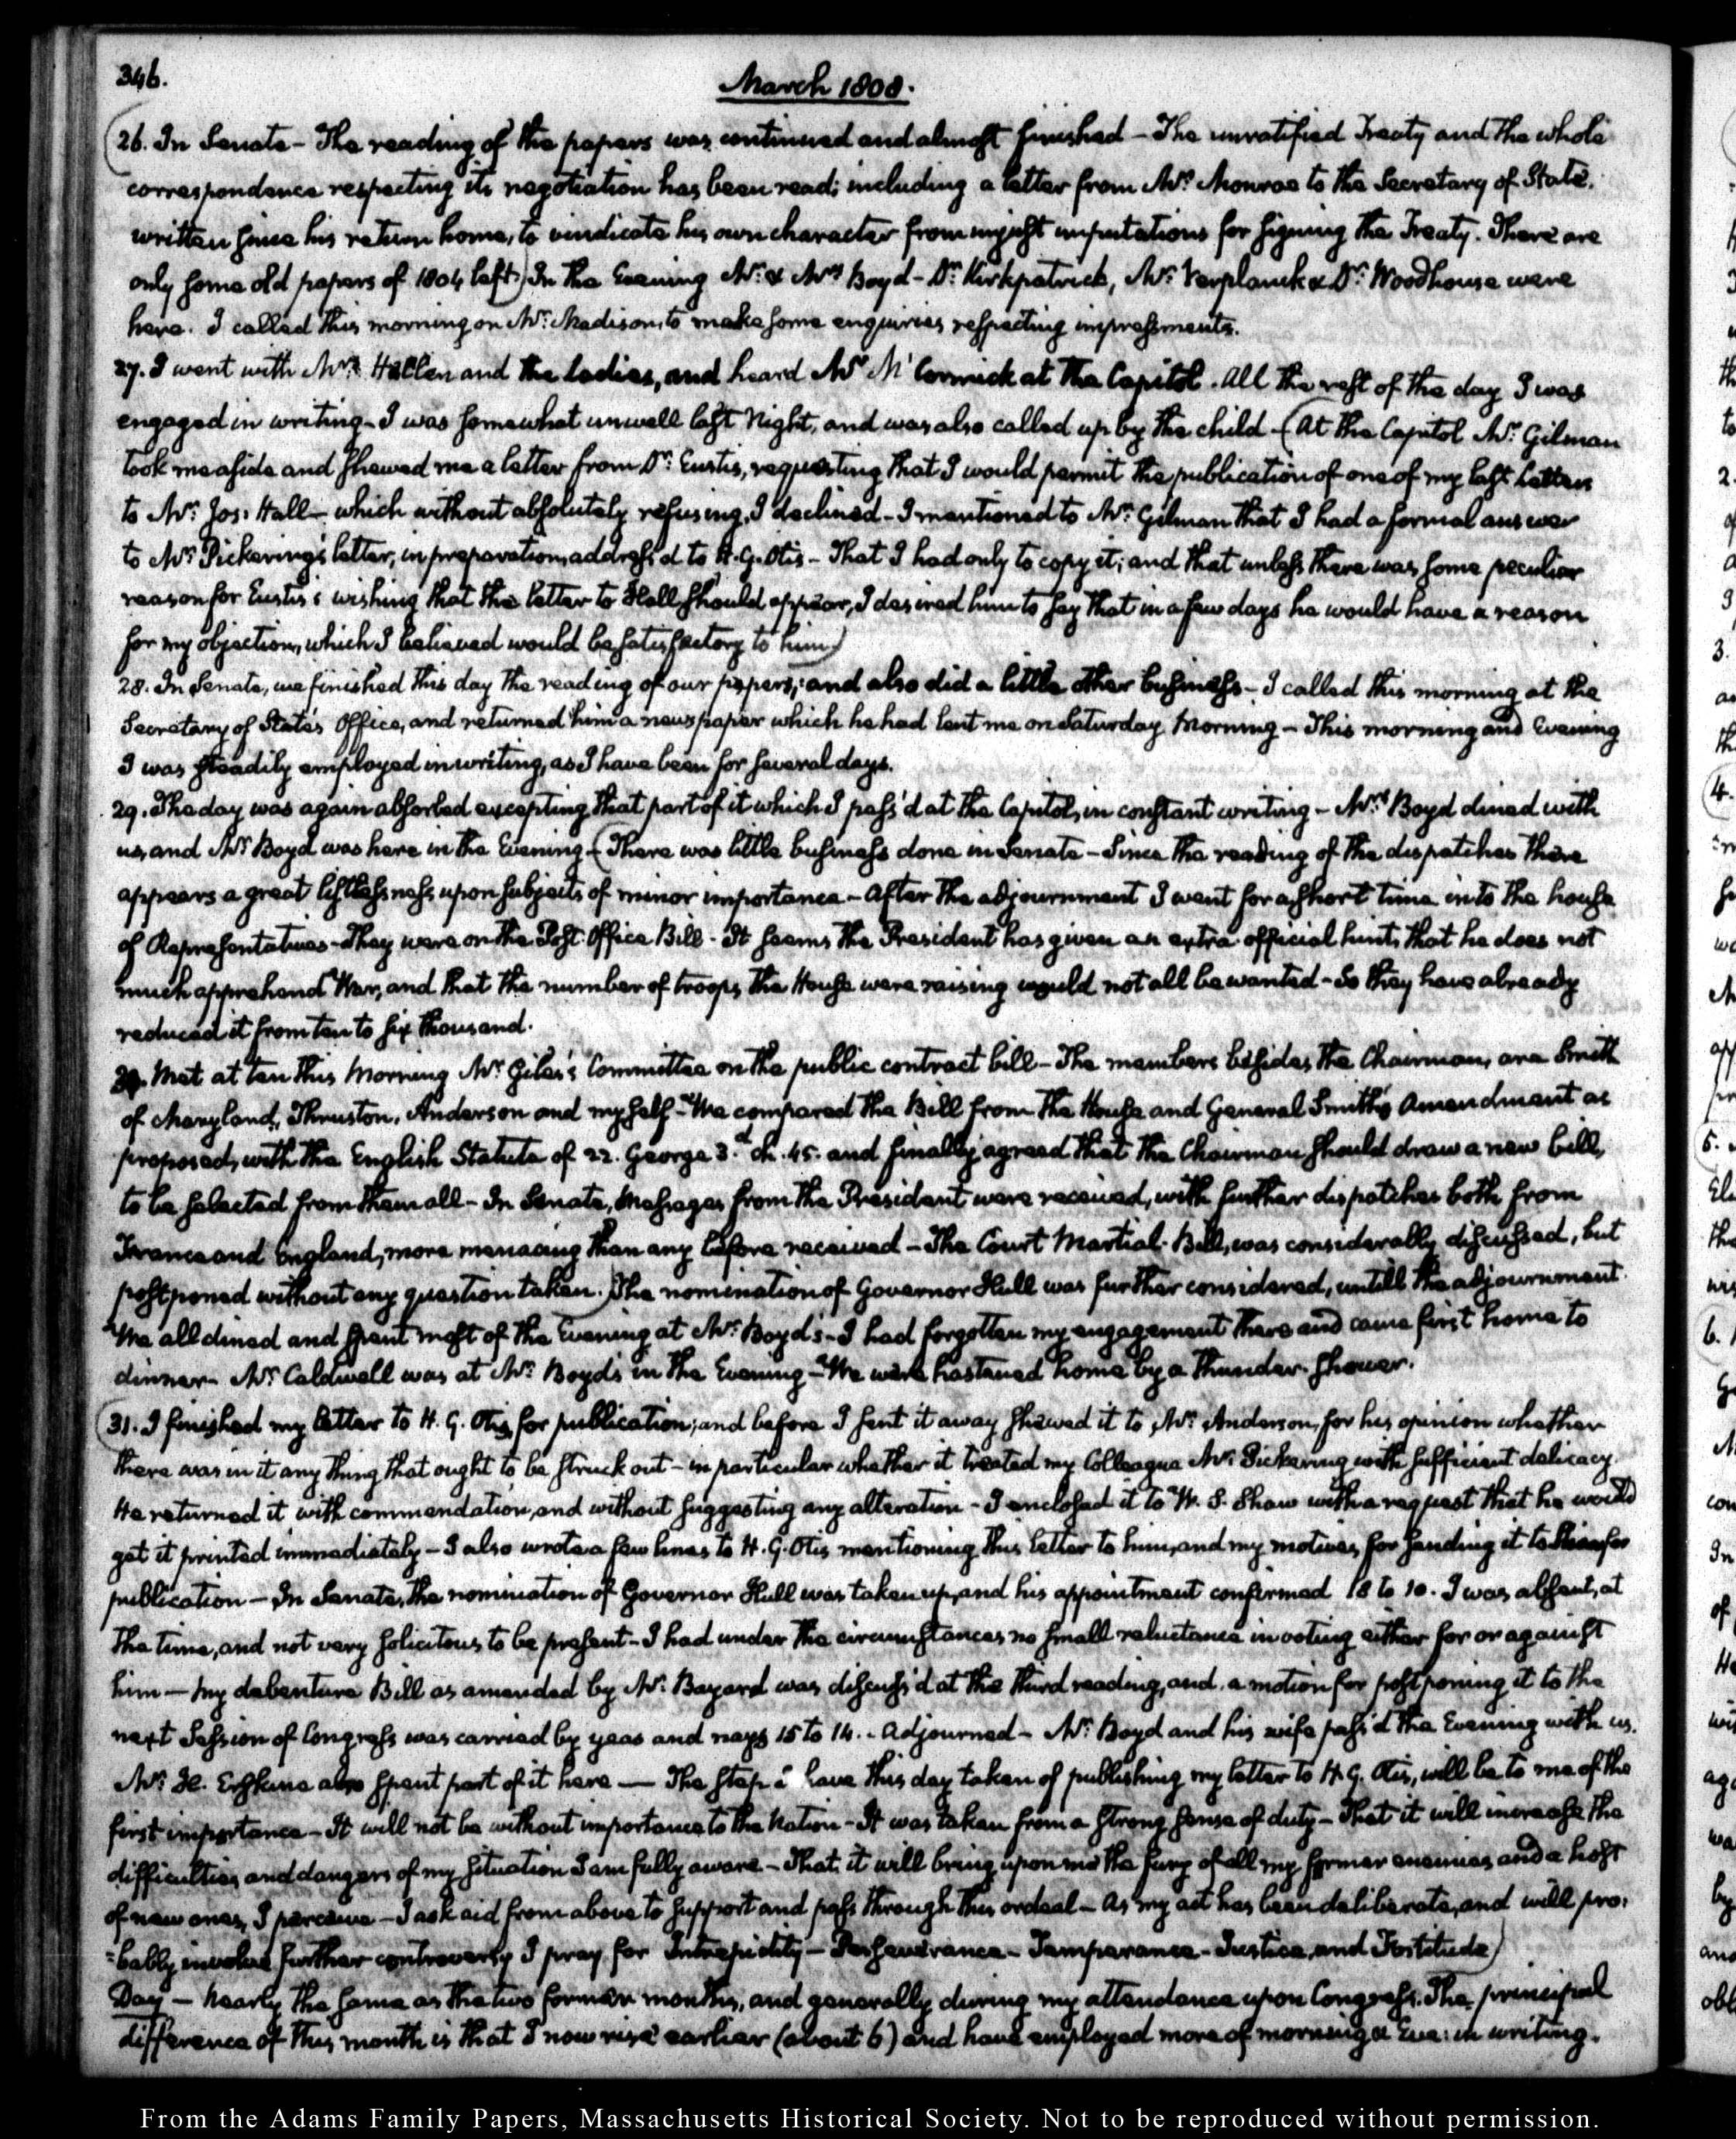 346.
March 1808.
26. In Senate - The reading of the papers was continued and almost finished - The unratified Treaty and the whole
correspondence respecting its negotiation has been read; including a letter from Mr. Monroe to the Secretary of State.
written since his return home, to vindicate his own character from unjust imputations for signing the Treaty. There are
only some old papers of 1804 left.) In the Evening Mr. & Mrs. Boyd - Dr. Kirkpatrick, Mr. Verplanck & Dr. Woodhouse were
here. I called this morning on Mr. Madison, to make some enquiries respecting impressments.
27. I went with Mrs. Hellen and the ladies, and heard Mr. McCormick at the Capitol. All the rest of the day I was
engaged in writing - I was somewhat unwell last Night, and was also called up by the child - (At the Capitol Mr. Gilman
took me aside and shewed me a letter from Dr. Eustis, requesting that I would permit the publication of one of my last letters
to Mr. Jos: Hall - which without absolutely refusing, I declined - I mentioned to Mr. Gilman that I had a formal answer
to Mr. Pickering's letter, in preparation, address'd to H. G. Otis - That I had only to copy it; and that unless there was some peculiar
reason for Eustis's wishing that the letter to Hall should appear, I desired him to say that in a few days he would have a reason
for my objection, which I believed would be satisfactory to him)
28. In Senate, we finished this day the reading of our papers; and also did a little other business - I called this morning at the
Secretary of State's Office, and returned him a newspaper which he had lent me on Saturday Morning - This morning and Evening
I was steadily employed in writing, as I have been for several days.
29. The day was again absorbed excepting that part of it which I pass'd at the Capitol, in constant writing - Mrs. Boyd dined with
us, and Mr. Boyd was here in the Evening - (There was little business done in Senate - Since the reading of the dispatches there
appears a great listlessness upon subjects of minor importance - After the adjournment I went for a short time into the house
of Representatives - They were on the Post-Office Bill - It seems the President has given an extra official hint, that he does not
much apprehend War, and that the number of troops the House were raising would not all be wanted - So they have already
reduced it from ten to six thousand.
30. Met at ten this Morning Mr. Giles's Committee on the public contract bill - The members besides the Chairman, are Smith
of Maryland, Thruston, Anderson and myself - We compared the Bill from the House and General Smith's Amendment as
proposed, with the English Statute of 22. George 3.d ch. 45. and finally agreed that the Chairman should draw a new bill,
to be selected from them all - In Senate, Messages from the President were received, with further dispatches both from
France and England, more menacing than any before received - The Court Martial Bill, was considerably discussed, but
postponed without any question taken.) The nomination of Governor Hull was further considered, untill the adjournment.
We all dined and spent most of the Evening at Mr. Boyd's - I had forgotten my engagement there and came first home to
dinner - Mr. Caldwell was at Mr. Boyd's in the Evening - We were hastened home by a thunder-shower.
(31. I finished my letter to H. G. Otis, for publication; and before I sent it away shewed it to Mr. Anderson, for his opinion whether
there was in it any thing that ought to be struck out - in particular whether it treated my Colleague Mr. Pickering with sufficient delicacy.
He returned it with commendation, and without suggesting any alteration - I enclosed it to W. S. Shaw with a request that he would
get it printed immediately - I also wrote a few lines to H. G. Otis mentioning this letter to him, and my motives for sending it to Shaw for
publication - In Senate, the nomination of Governor Hull was taken up, and his appointment confirmed 18 to 10. I was absent, at
the time, and not very solicitous to be present - I had under the circumstances no small reluctance in voting either for or against
him - My debenture Bill as amended by Mr. Bayard was discuss'd at the third reading, and a motion for postponing it to the
next Session of Congress was carried by yeas and nays 15 to 14. - Adjourned - Mr. Boyd and his wife pass'd the Evening with us.
Mr. H. Erskine also spent part of it here - The step I have this day taken of publishing my letter to H. G. Otis, will be to me of the
first importance - It will not be without importance to the Nation - It was taken from a strong sense of duty - That it will increase the
difficulties and dangers of my situation I am fully aware - That it will bring upon me the fury of all my former enemies, and a host
of new ones, I perceive - I ask aid from above to support and pass through this ordeal - As my act has been deliberate, and will pro:
=bably involve further controversy I pray for Intrepidity - Perseverance - Temperance - Justice, and Fortitude)
Day - Nearly the same as the two former months, and generally during my attendance upon Congress. The principal
difference of this month is that I now rise earlier (about 6) and have employed more of morning & Eve: in writing.
From the Adams Family Papers, Massachusetts Historical Society. Not to be reproduced without permission.